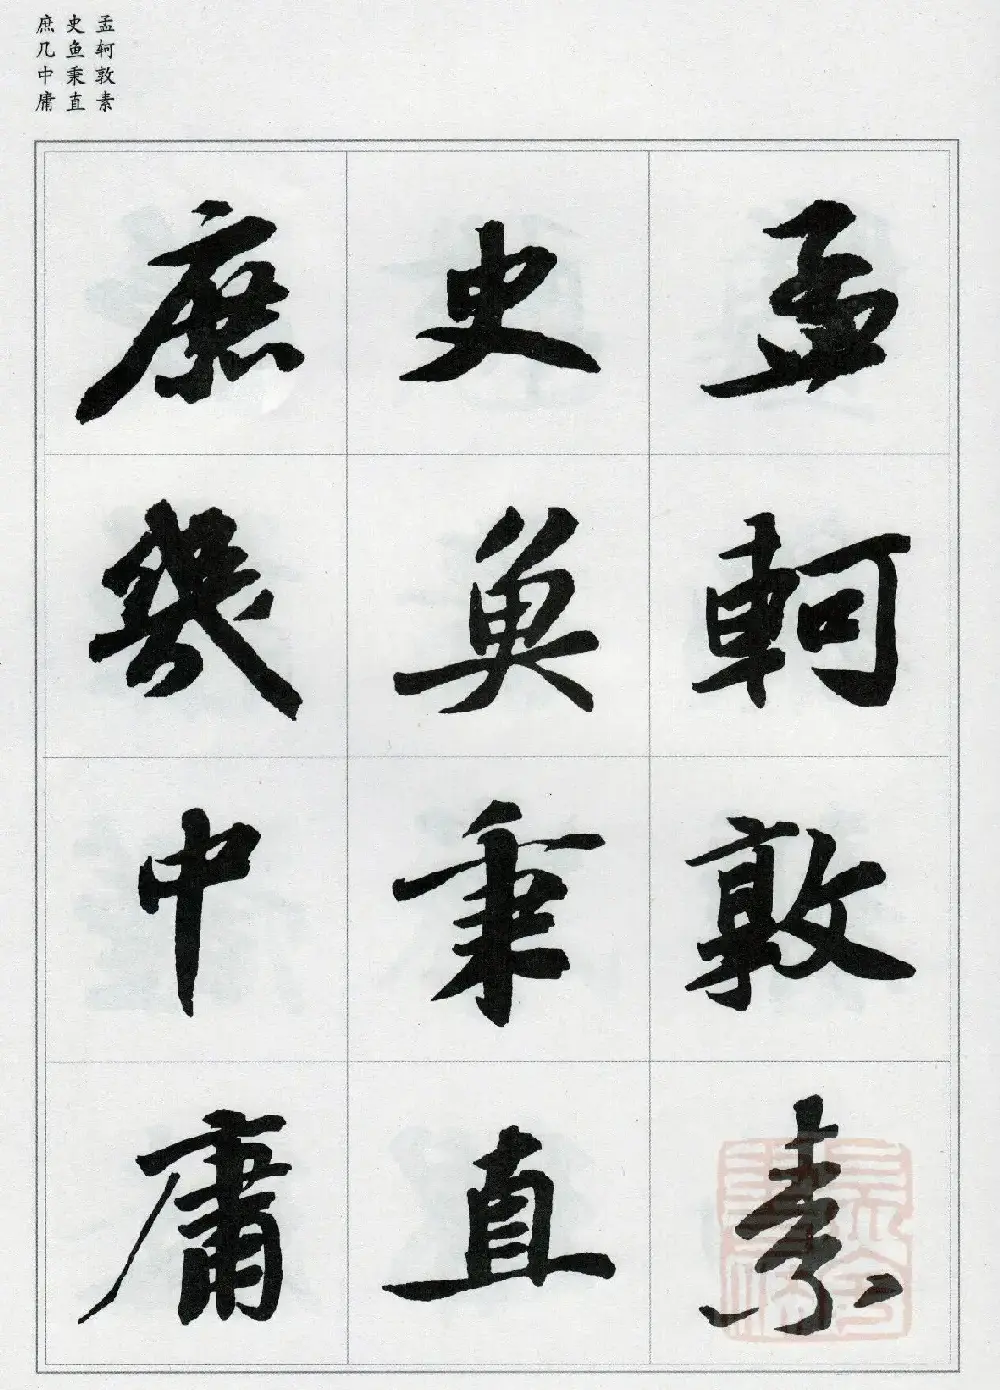 孟轲敦素
史鱼秉直
庶几中庸
孟軻敦素
史魚秉直
庶幾中庸